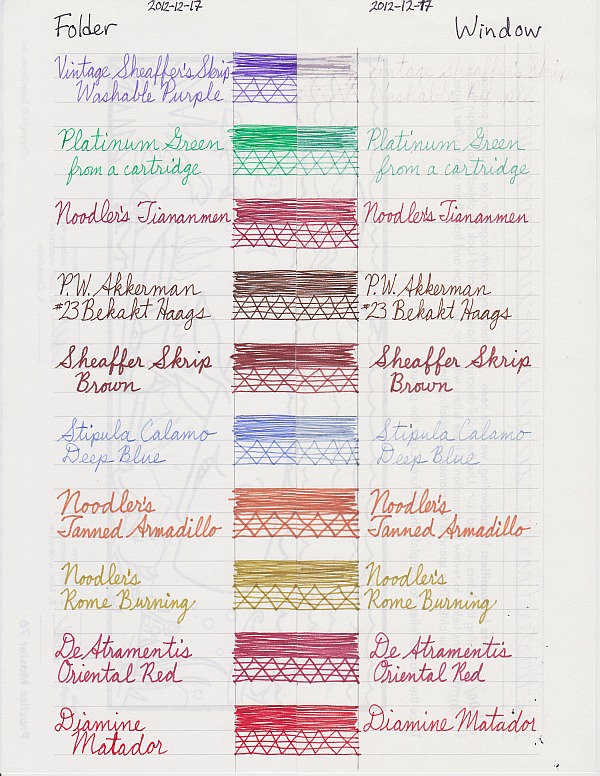 2012-12-17 2012-12-17
Folder Window
Vintage Sheaffer's Skrip Vintage Sheaffer's Skrip
Washable Purple Washable Purple
Platinum Green Platinum Green
from a cartridge from a cartridge
Noodler's Tiananmen Noodler's Tiananmen
P.W. Akkerman P.W. Akkerman
#23 Bekakt Haags #23 Bekakt Haags
Sheaffer Skrip Sheaffer Skrip
Brown Brown
Stipula Calamo Stipula Calamo
Deep Blue Deep Blue
Noodler's Noodler's
Tanned Armadillo Tanned Armadillo
Noodler's Noodler's
Rome Burning Rome Burning
De Atramentis De Atramentis
Oriental Red Oriental Red
Diamine Diamine Matador
Matador